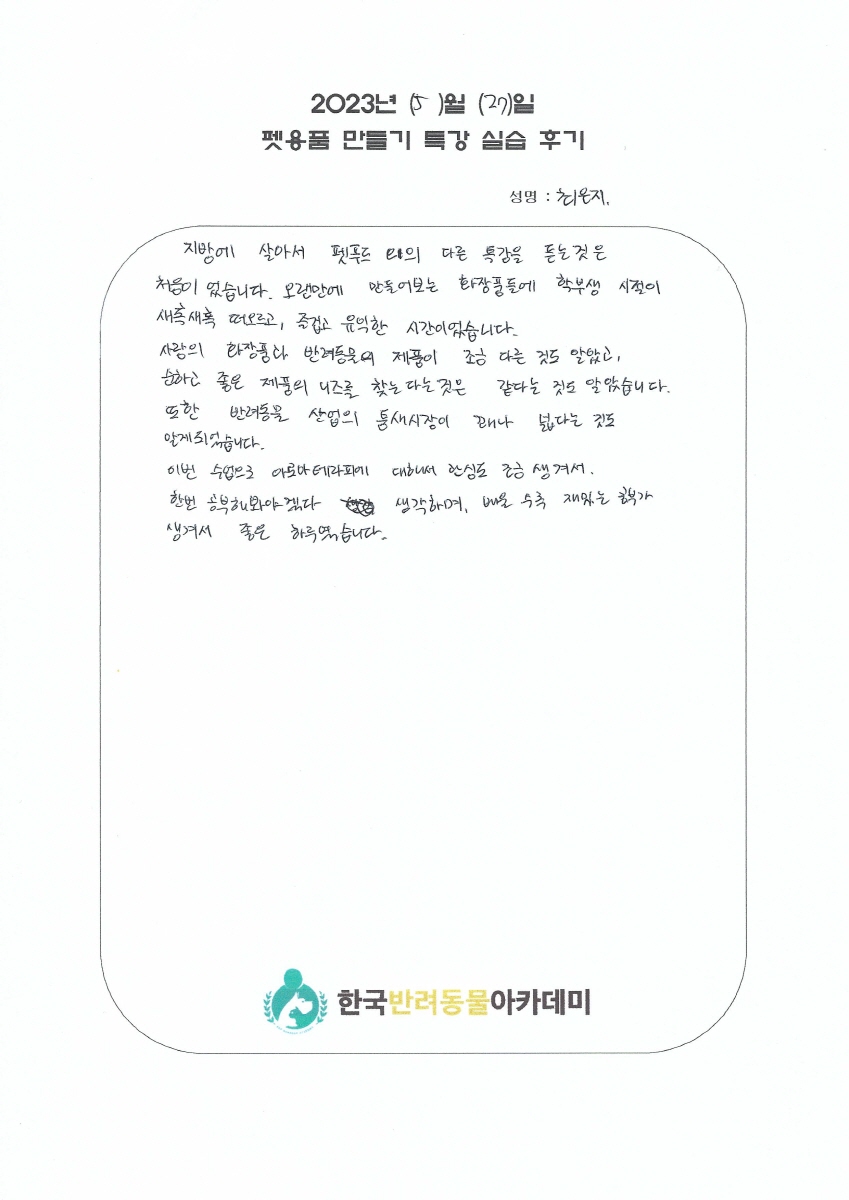 2023년 (5)월 (27)일
펫용품 만들기 특강 실습 후기
성명 : 최은지.
지방에 살아서 펫푸드 외의 다른 특강을 듣는것은
처음이 었습니다. 오랜만에 만들어보는 화장품들에 학부생 시절이
새록새록 떠오르고, 즐겁고 유익한 시간이었습니다.
사람의 화장품과 반려동물의 제품이 조금 다른 것도 알았고,
순하고 좋은 제품의 니즈를 찾는다는것은 같다는 것도 알았습니다.
또한 반려동물 산업의 틈새시장이 꽤나 넓다는 것도
알게되었습니다.
이번 수업으로 아로마테라피에 대해서 관심도 조금 생겨서.
한번 공부해봐야겠다 생각하며, 배울 수록 재밌는 공부가
생겨서 좋은 하루였습니다.
한국반려동물아카데미